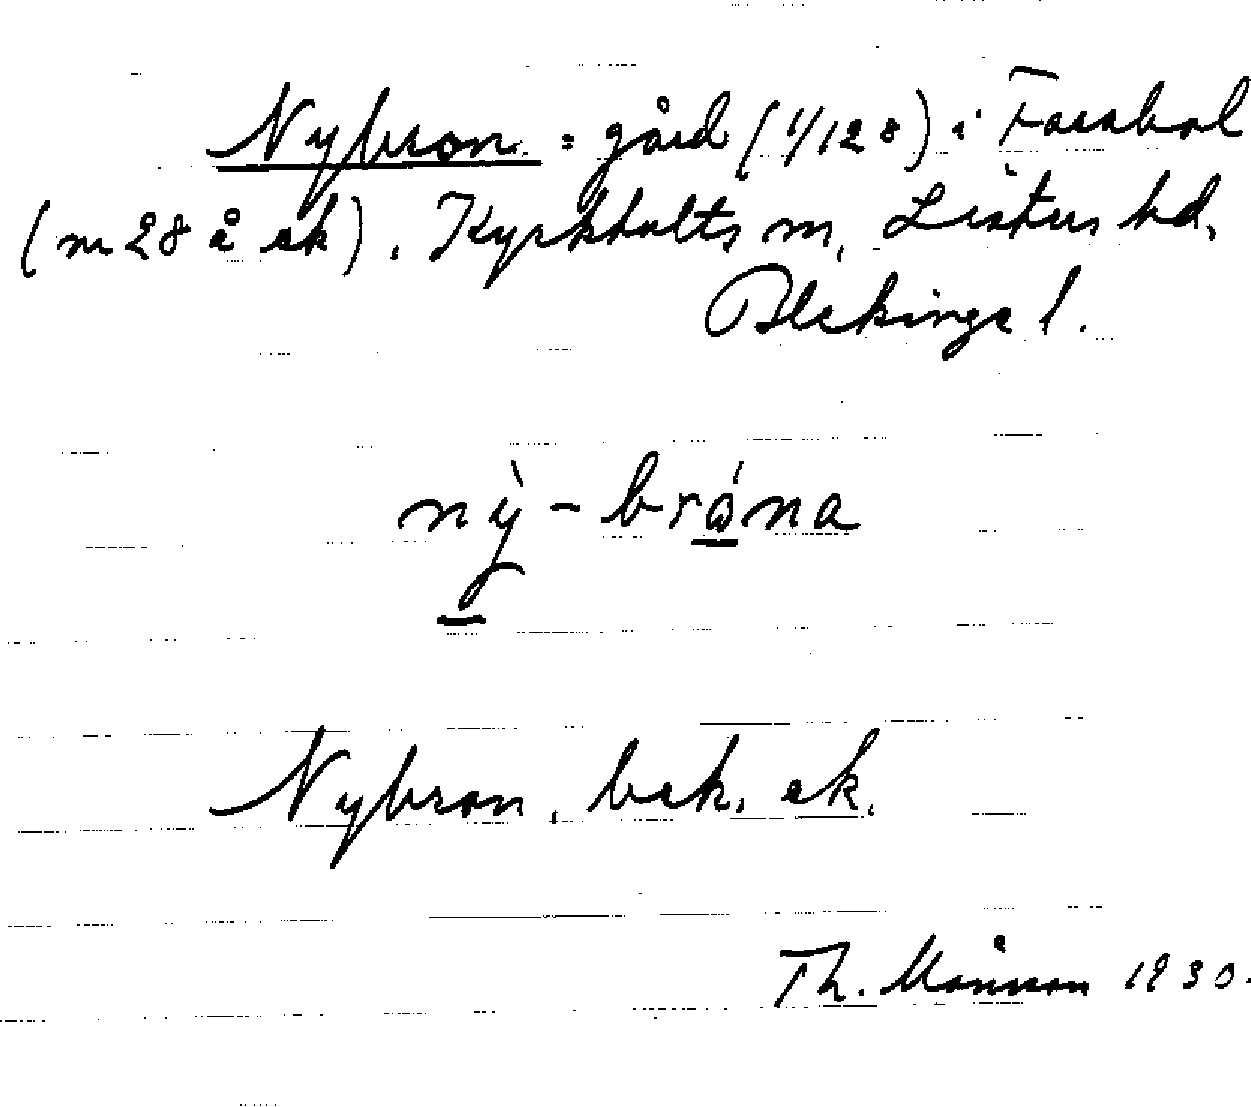 Nybron = gård (1/128) i Farabol
(nr 28 å ek). Kyrkhults sn, Listers hd,
Blekinge l.
nỳ̱ - brǫ́na
Nybron, bek. ek.
Th. Månsson 1930.